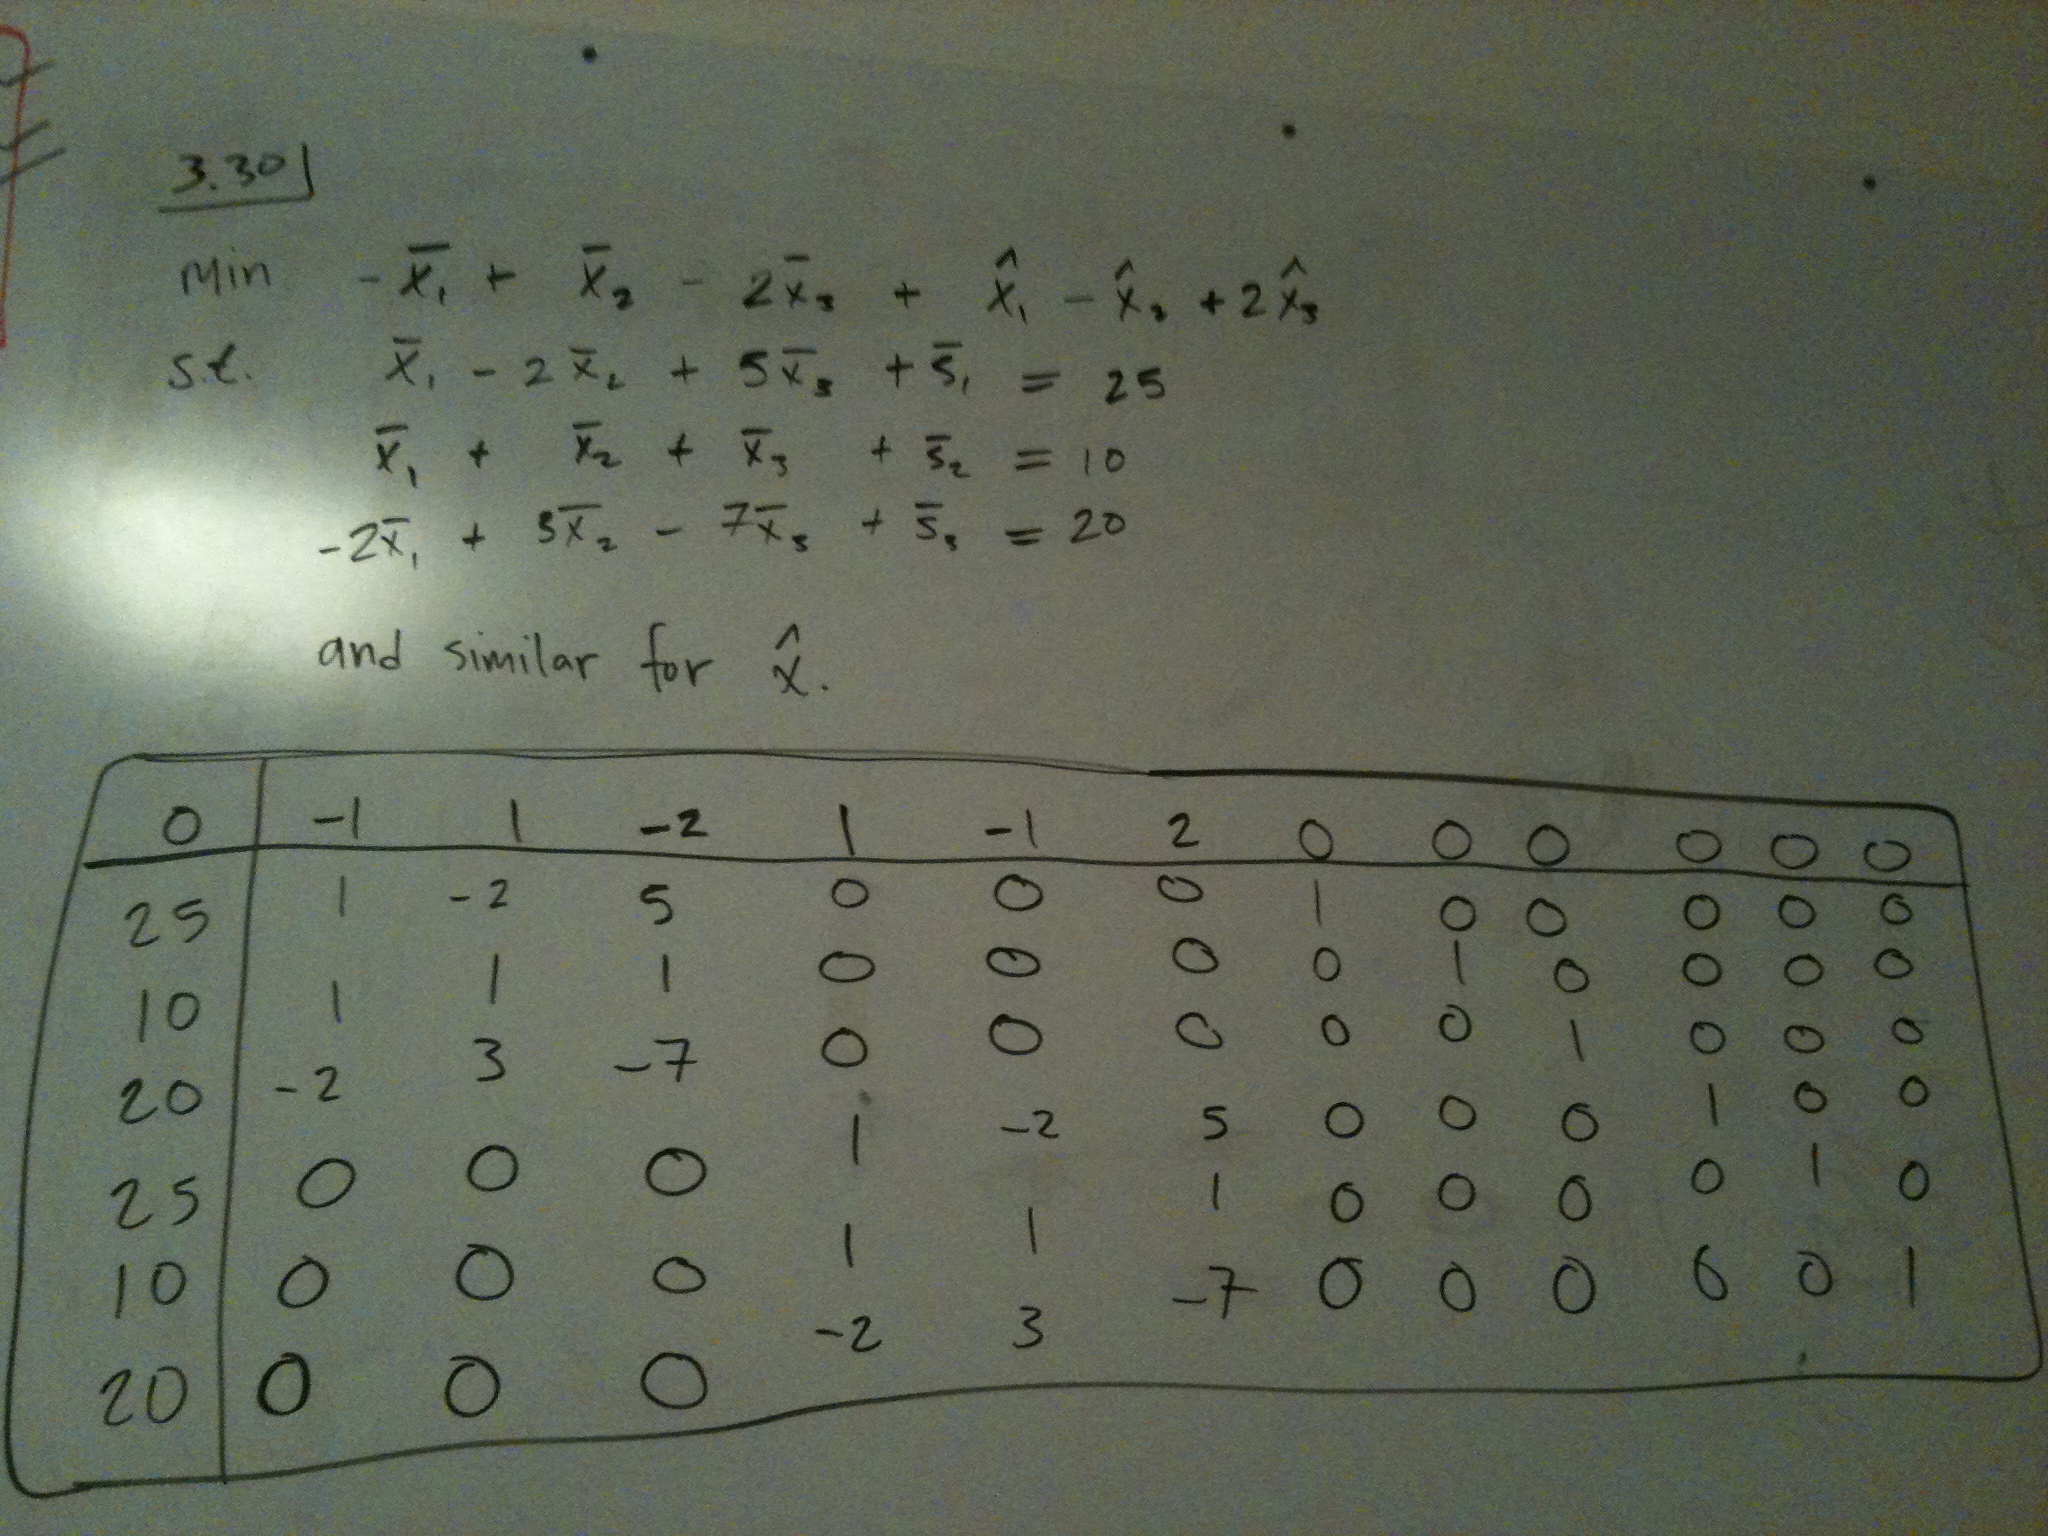 3.30
Min -x̄₁ + x̄₂ - 2x̄₃ + x̂₁ - x̂₂ + 2x̂₃
s.t. x̄₁ - 2x̄₂ + 5x̄₃ + s̄₁ = 25
x̄₁ + x̄₂ + x̄₃ + s̄₂ = 10
-2x̄₁ + 3x̄₂ - 7x̄₃ + s̄₃ = 20
and similar for x̂.
0 -1 1 -2 1 -1 2 0 0 0 0 0 0
25 1 -2 5 0 0 0 1 0 0 0 0 0
10 1 1 1 0 0 0 0 1 0 0 0 0
20 -2 3 -7 0 0 0 0 0 1 0 0 0
25 0 0 0 1 -2 5 0 0 0 1 0 0
10 0 0 0 1 1 1 0 0 0 0 1 0
20 0 0 0 -2 3 -7 0 0 0 0 0 1